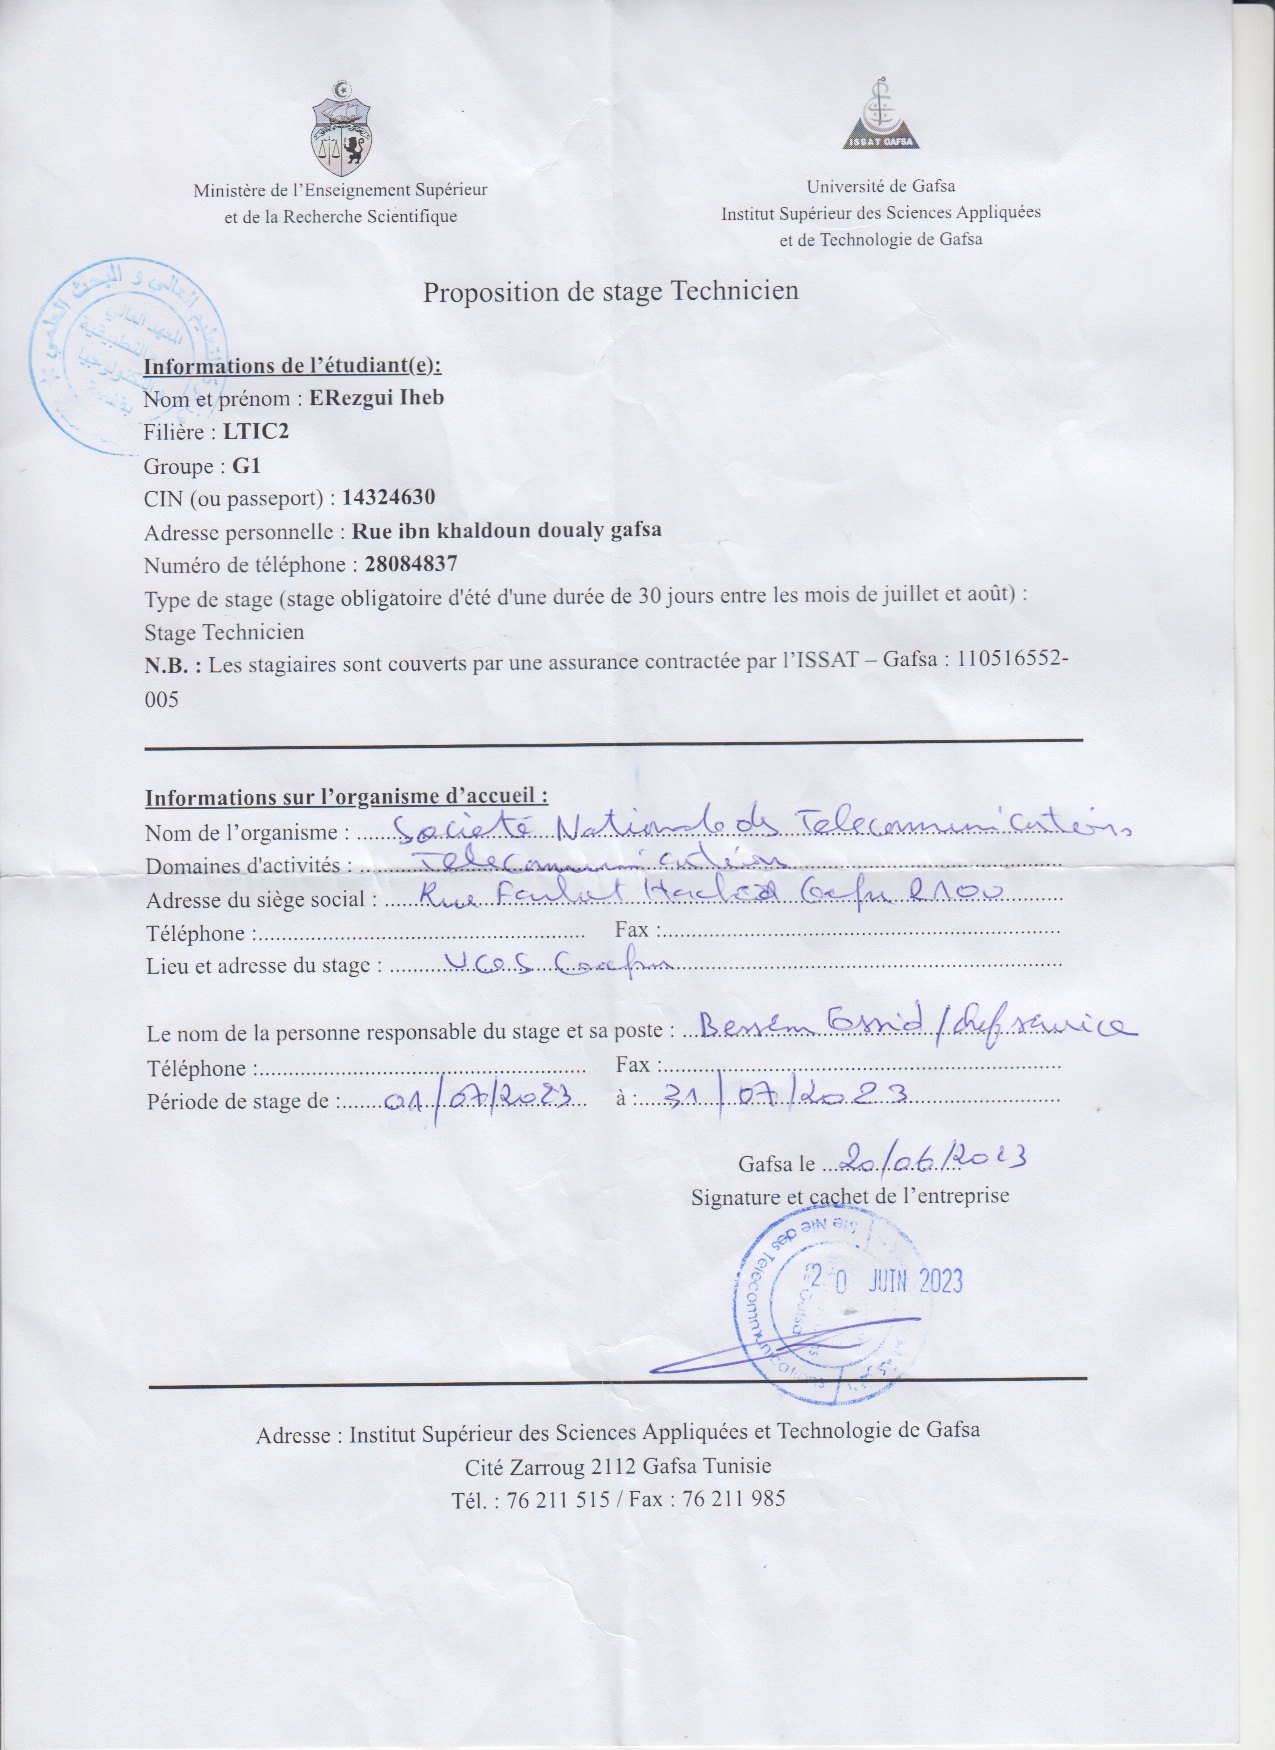 ISSAT GAFSA
Ministère de l'Enseignement Supérieur
et de la Recherche Scientifique
Université de Gafsa
Institut Supérieur des Sciences Appliquées
et de Technologie de Gafsa
Proposition de stage Technicien
Informations de l'étudiant(e):
Nom et prénom : ERezgui Iheb
Filière : LTIC2
Groupe : G1
CIN (ou passeport) : 14324630
Adresse personnelle : Rue ibn khaldoun doualy gafsa
Numéro de téléphone : 28084837
Type de stage (stage obligatoire d'été d'une durée de 30 jours entre les mois de juillet et août) :
Stage Technicien
N.B. : Les stagiaires sont couverts par une assurance contractée par l'ISSAT – Gafsa : 110516552-
005
Informations sur l'organisme d'accueil :
Nom de l'organisme : Societé Nationale des Telecommunications
Domaines d'activités : Telecommunication
Adresse du siège social : Rue Farhat Hached Gafsa 2100
Téléphone : Fax :
Lieu et adresse du stage : Gafsa
Le nom de la personne responsable du stage et sa poste : Bessem Essid / chef service
Téléphone : Fax :
Période de stage de : 01/07/2023 à : 31/07/2023
Gafsa le 20/06/2023
Signature et cachet de l'entreprise
Ste Nle des Telecommunications
20 JUIN 2023
Adresse : Institut Supérieur des Sciences Appliquées et Technologie de Gafsa
Cité Zarroug 2112 Gafsa Tunisie
Tél. : 76 211 515 / Fax : 76 211 985